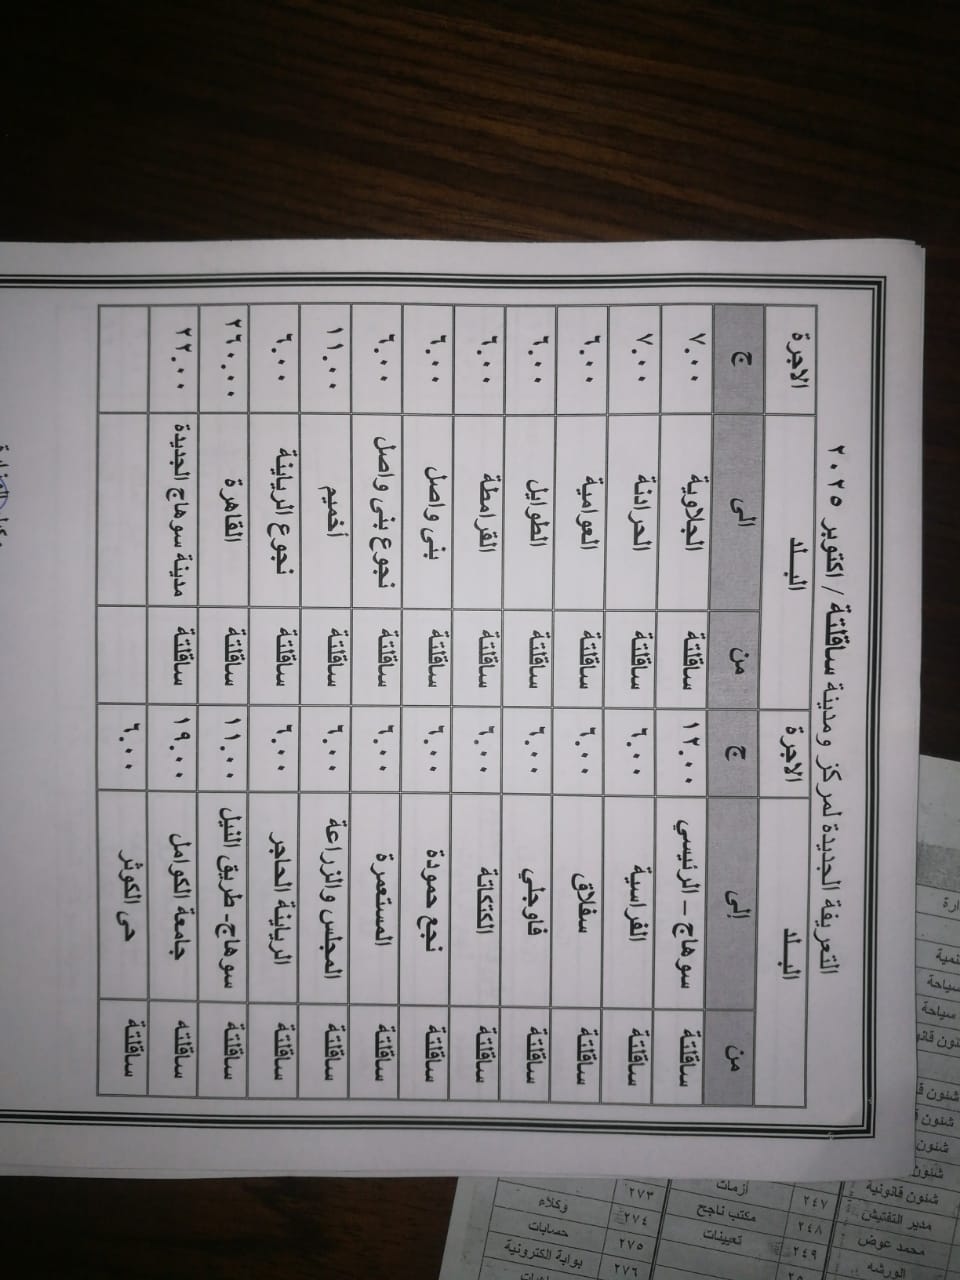 التعريفة الجديدة لمركز ومدينة ساقلتة / اكتوبر ٢٠٢٥
البـــلد الاجرة البـــلد الاجرة
من إلى ج من الى ج
ساقلتة سوهاج – الرئيسي ١٢.٠٠ ساقلتة الجلاوية ٧.٠٠
ساقلتة الفراسية ٦.٠٠ ساقلتة الحرادنة ٧.٠٠
ساقلتة سفلاق ٦.٠٠ ساقلتة العوامية ٦.٠٠
ساقلتة فاوجلي ٦.٠٠ ساقلتة الطوايل ٦.٠٠
ساقلتة الكتكاتة ٦.٠٠ ساقلتة القرامطة ٦.٠٠
ساقلتة نجع حمودة ٦.٠٠ ساقلتة بنى واصل ٦.٠٠
ساقلتة المستعمرة ٦.٠٠ ساقلتة نجوع بنى واصل ٦.٠٠
ساقلتة المجلس والزراعة ٦.٠٠ ساقلتة أخميم ١١.٠٠
ساقلتة الرياينة الحاجر ٦.٠٠ ساقلتة نجوع الرياينة ٦.٠٠
ساقلتة سوهاج- طريق النيل ١١.٠٠ ساقلتة القاهرة ٢٦٠.٠٠
ساقلته جامعة الكوامل ١٩.٠٠ ساقلتة مدينة سوهاج الجديدة ٢٢.٠٠
ساقلتة حى الكوثر ٦.٠٠
سياحة
شئون قانونية
مدير التفتيش
محمد عوض
الورشه
٢٤٧ أزمات
٢٤٨ مكتب ناجح
٢٤٩ تعيينات
٢٧٣
٢٧٤ وكلاء
٢٧٥ حسابات
٢٧٦ بوابة الكترونية